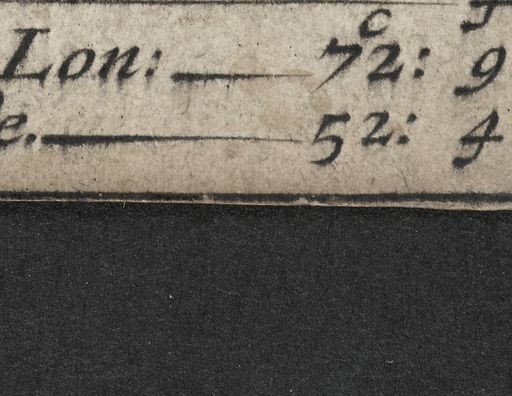 Lon: 72: 9
e. 52: 4